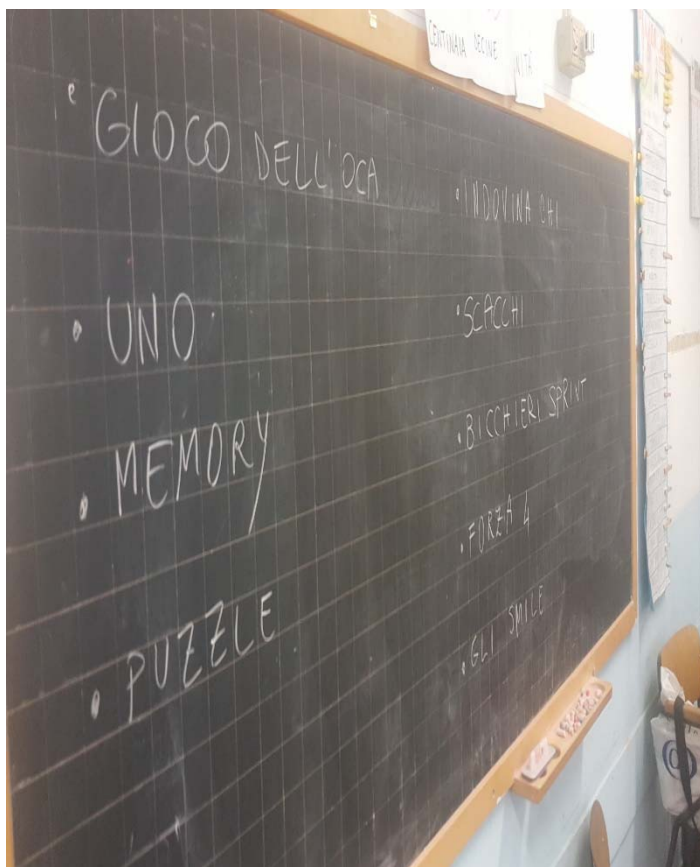 CENTINAIA DECINE
NITÀ
• GIOCO DELL'OCA
• UNO
• MEMORY
• PUZZLE
• INDOVINA CHI
• SCACCHI
• BICCHIERI SPRINT
• FORZA 4
• GLI SMILE